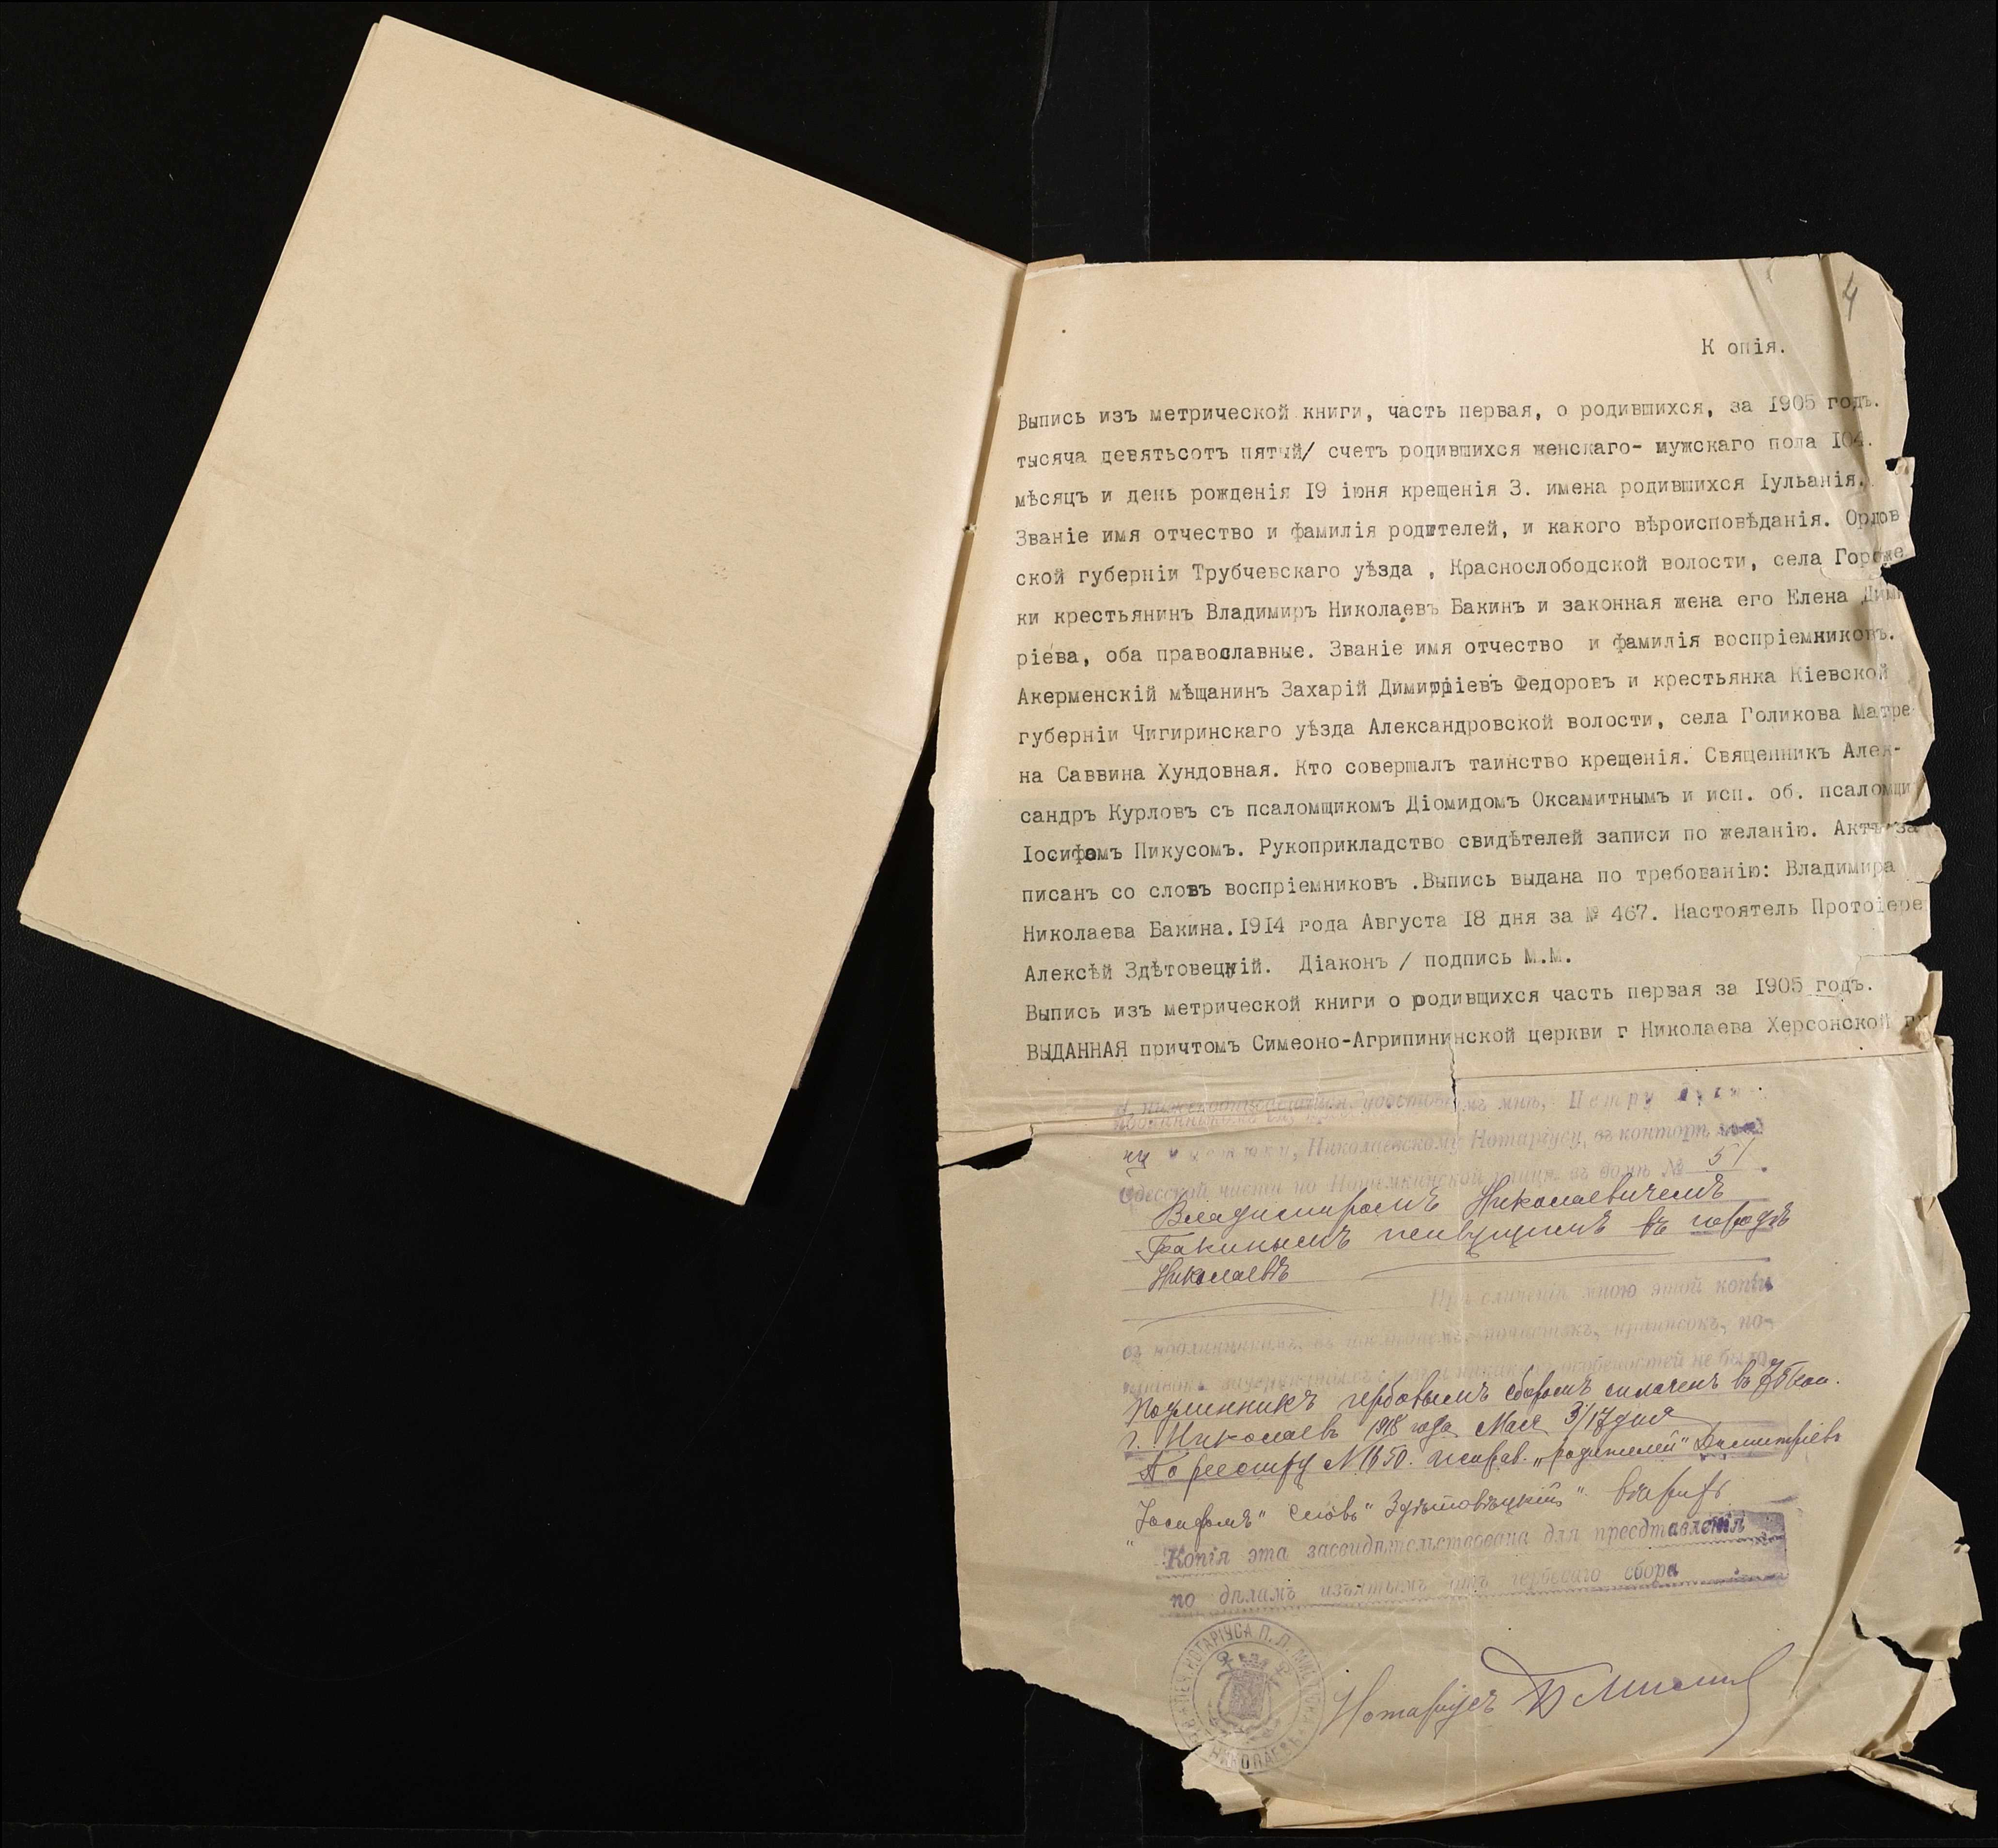 4
К опія.
Выпись изъ метрической книги, часть первая, о родившихся, за 1905 годъ.
тысяча девятьсотъ пятый/ счетъ родившихся женскаго- мужскаго пола 104.
мѣсяцъ и день рожденія 19 іюня крещенія 3. имена родившихся Іульанія.
Званіе имя отчество и фамилія родителей, и какого вѣроисповѣданія. Орлов
ской губерніи Трубчевскаго уѣзда , Краснослободской волости, села Гороже
ки крестьянинъ Владимиръ Николаевъ Бакинъ и законная жена его Елена Дим
ріева, оба православные. Званіе имя отчество и фамилія воспріемниковъ.
Акерменскій мѣщанинъ Захарій Димитріевъ Федоровъ и крестьянка Кіевской
губерніи Чигиринскаго уѣзда Александровской волости, села Голикова Матре
на Саввина Хундовная. Кто совершалъ таинство крещенія. Священникъ Алек-
сандръ Курловъ съ псаломщикомъ Діомидомъ Оксамитнымъ и исп. об. псаломщи
Іосифомъ Пикусомъ. Рукоприкладство свидѣтелей записи по желанію. Актъ за
писанъ со словъ воспріемниковъ .Выпись выдана по требованію: Владимира
Николаева Бакина.1914 года Августа 18 дня за № 467. Настоятель Протоіере
Алексѣй Здѣтовецкій. Діаконъ / подпись М.М.
Выпись изъ метрической книги о родивщихся часть первая за 1905 годъ.
ВЫДАННАЯ причтомъ Симеоно-Агрипининской церкви г Николаева Херсонской г
мнѣ, Петру
Николаевскому Нотаріусу, въ конторѣ
Одесской части по Потемкинской улицѣ въ домѣ № 51.
Владимиромъ Николаевичемъ
Бакинымъ живущимъ въ городѣ
Николаевѣ
При сличеніи мною этой копіи
съ подлинникомъ, въ приписокъ, по-
особенностей не было.
Подлинникъ гербовымъ сборомъ оплаченъ въ 75 коп.
г. Николаевъ 1918 года Мая 3/17 дня
По реестру № 1650. исправ. „родителей" Димитріевъ
„Іосифомъ" словъ" Здѣтовѣцкій" вѣрить
Копія эта засвидѣтельствована для представленія
по дѣламъ изъятымъ отъ гербоваго сбора
ПЕЧ. НОТАРІУСА П. Л. НИКОЛАЕВЪ
Нотаріусъ П